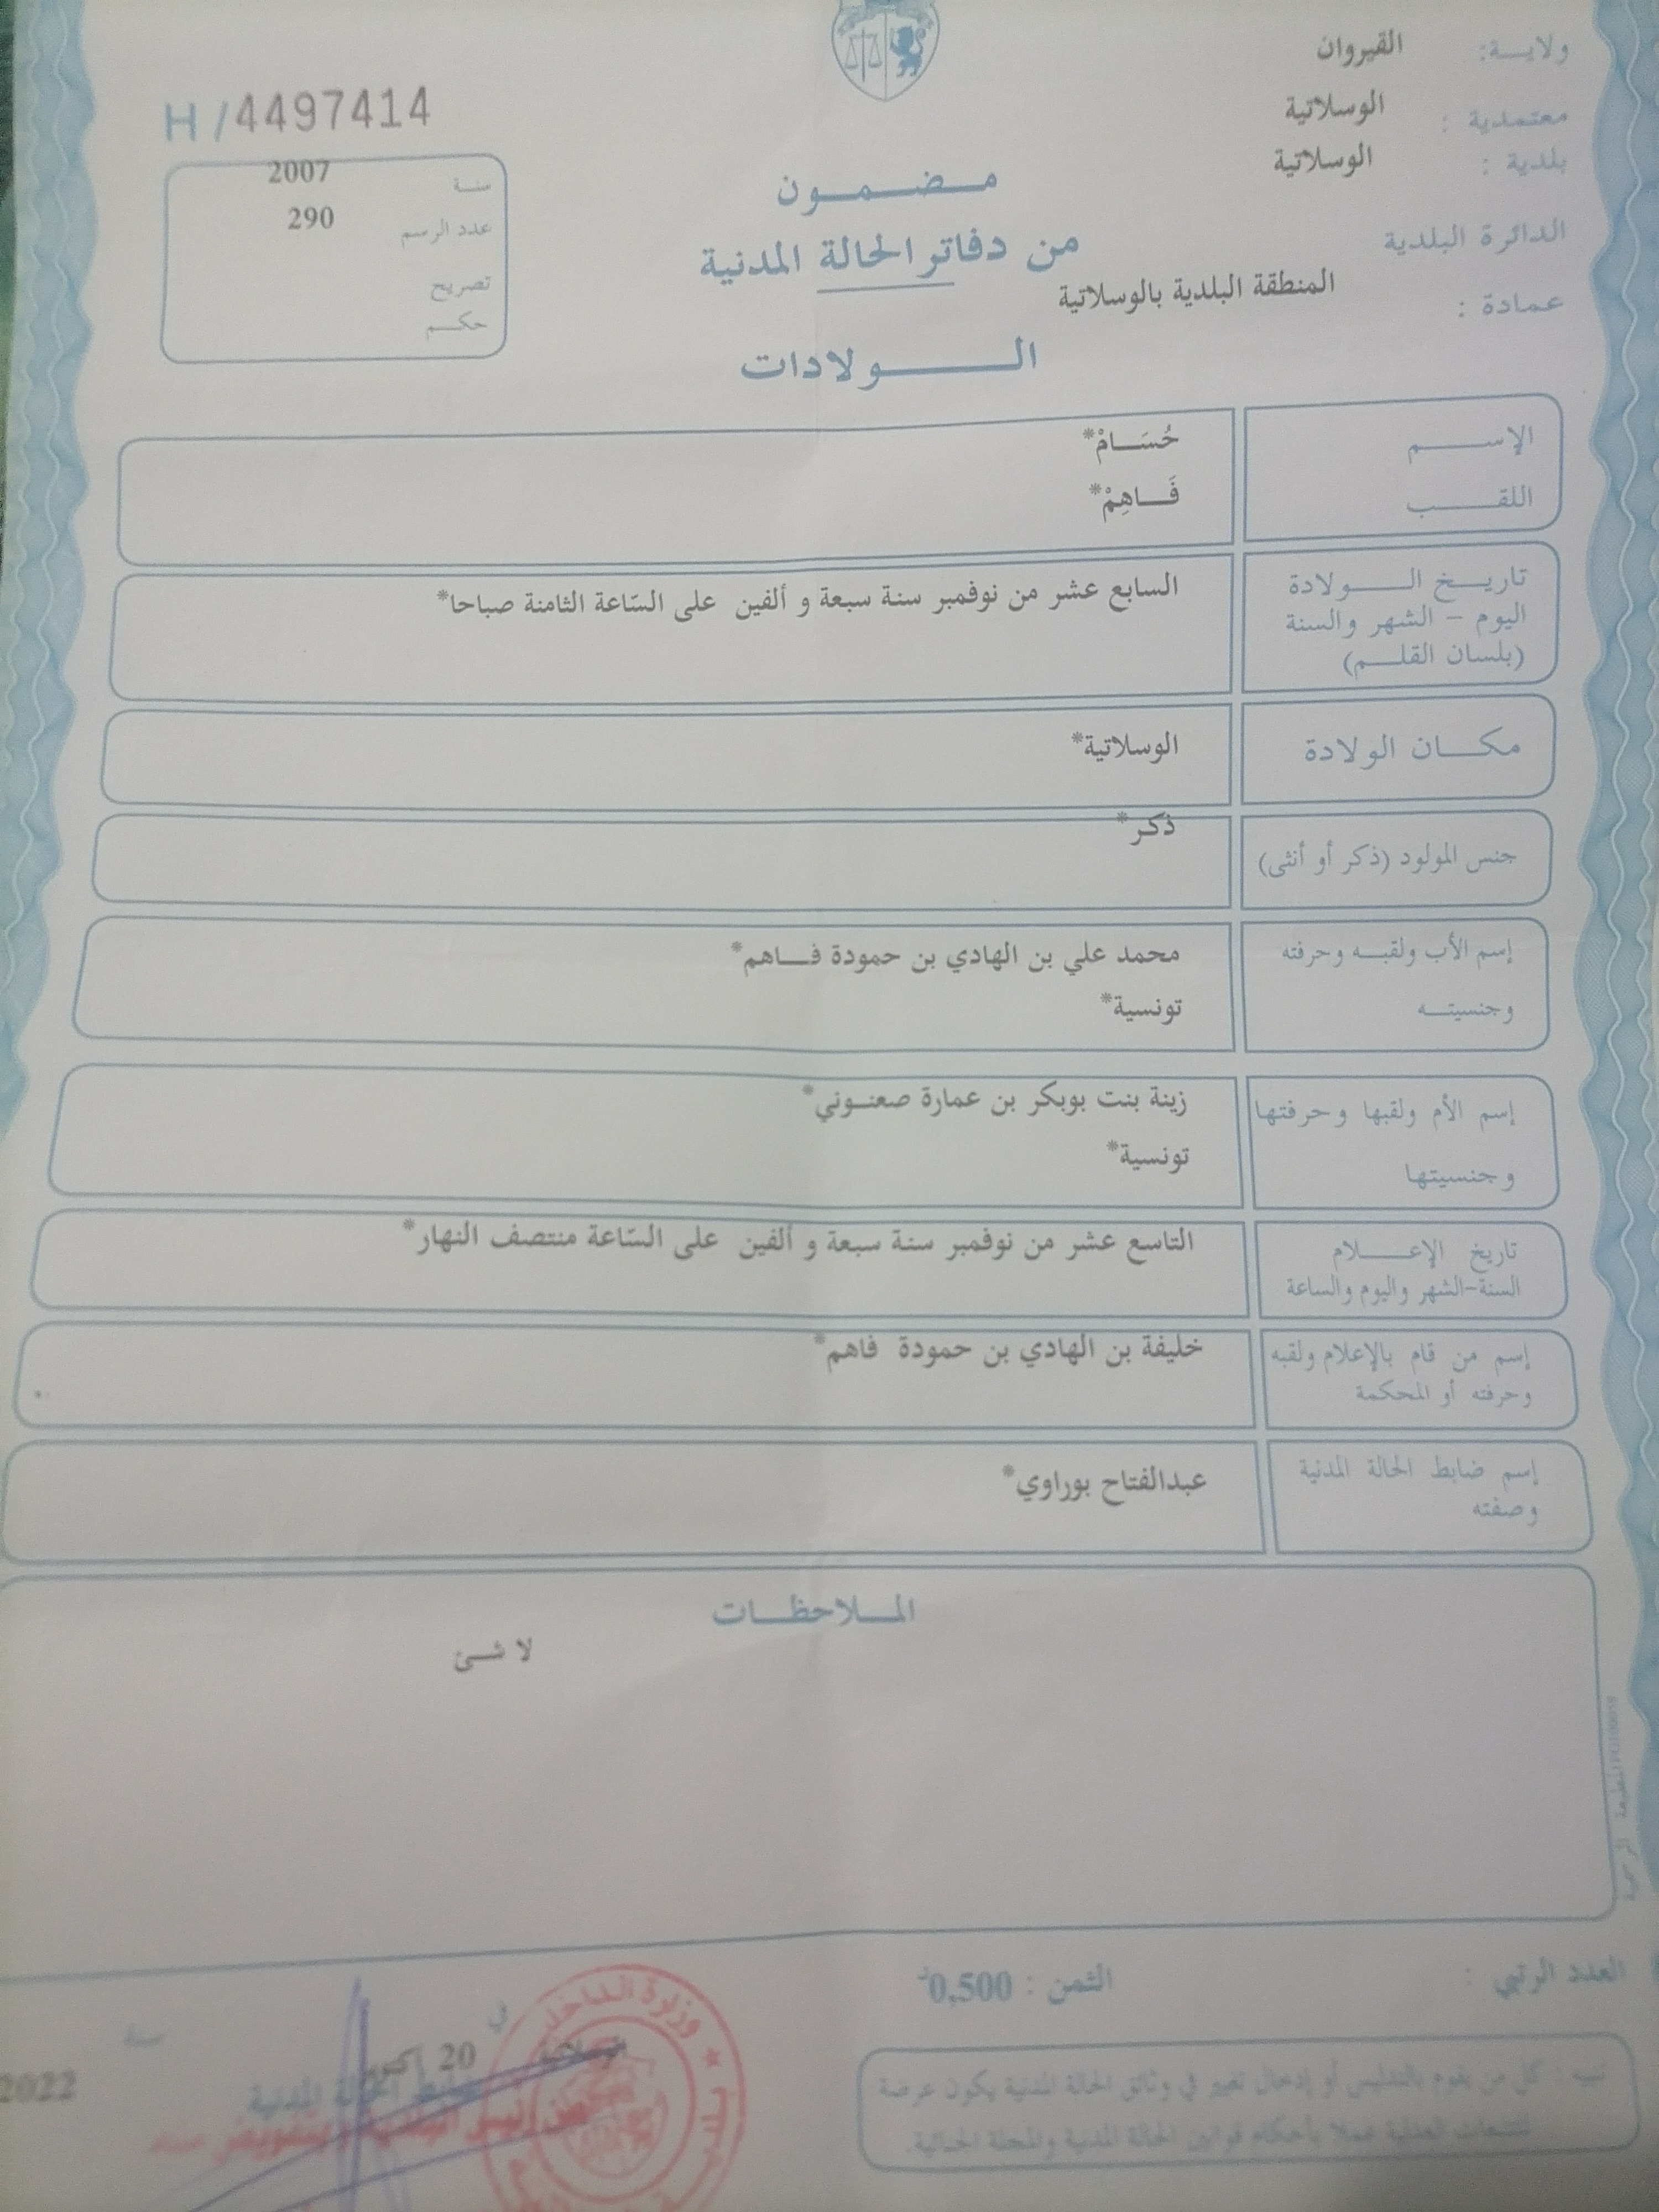 ولاية: القيروان
معتمدية : الوسلاتية
بلدية : الوسلاتية
الدائرة البلدية
عمادة : المنطقة البلدية بالوسلاتية
H / 4497414
سنة 2007
عدد الرسم 290
تصريح
حكم
مضمون
من دفاتر الحالة المدنية
الولادات
الإسم حُسَامْ*
اللقب فَاهِمْ*
تاريخ الولادة السابع عشر من نوفمبر سنة سبعة و ألفين على السّاعة الثامنة صباحا*
اليوم - الشهر والسنة
(بلسان القلم)
مكان الولادة الوسلاتية*
جنس المولود (ذكر أو أنثى) ذكر*
إسم الأب ولقبه وحرفته محمد علي بن الهادي بن حمودة فاهم*
وجنسيته تونسية*
إسم الأم ولقبها وحرفتها زينة بنت بوبكر بن عمارة صعنوني*
وجنسيتها تونسية*
تاريخ الإعلام التاسع عشر من نوفمبر سنة سبعة و ألفين على السّاعة منتصف النهار*
السنة-الشهر واليوم والساعة
إسم من قام بالإعلام ولقبه خليفة بن الهادي بن حمودة فاهم*
وحرفته أو المحكمة
إسم ضابط الحالة المدنية عبدالفتاح بوراوي*
وصفته
الملاحظات
لا شئ
المطبعة الرسمية
العدد الرتبي :
الثمن : 0,500د
تنبيه : كل من يقوم بالتدليس أو إدخال تغيير في وثائق الحالة المدنية يكون عرضة
للتتبعات العدلية عملا بأحكام قوانين الحالة المدنية والمجلة الجنائية.
الوسلاتية في 20 أكتوبر سنة 2022
ضابط الحالة المدنية
وزارة الداخلية